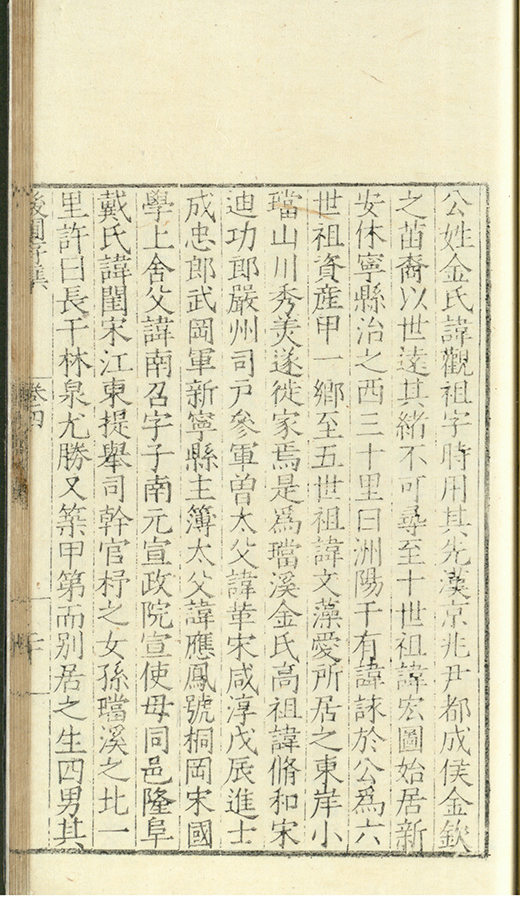 公姓金氏諱觀祖字時用其先漢京兆尹都成侯金欽
之苗裔以世遠其緒不可尋至十世祖諱宏圖始居新
安休寧縣治之西三十里曰洲陽干有諱詠於公爲六
世祖資産甲一鄉至五世祖諱文藻愛所居之東岸小
璫山川秀美遂徙家焉是爲璫溪金氏高祖諱脩和宋
迪功郎嚴州司戸參軍曽太父諱革宋咸淳戊辰進士
成忠郎武岡軍新寧縣主簿太父諱應鳳號桐岡宋國
學上舍父諱南召字子南元宣政院宣使母同邑隆阜
戴氏諱閨宋江東提舉司幹官杍之女孫璫溪之北一
里許曰長干林泉尤勝又築甲第而别居之生四男其
卷四